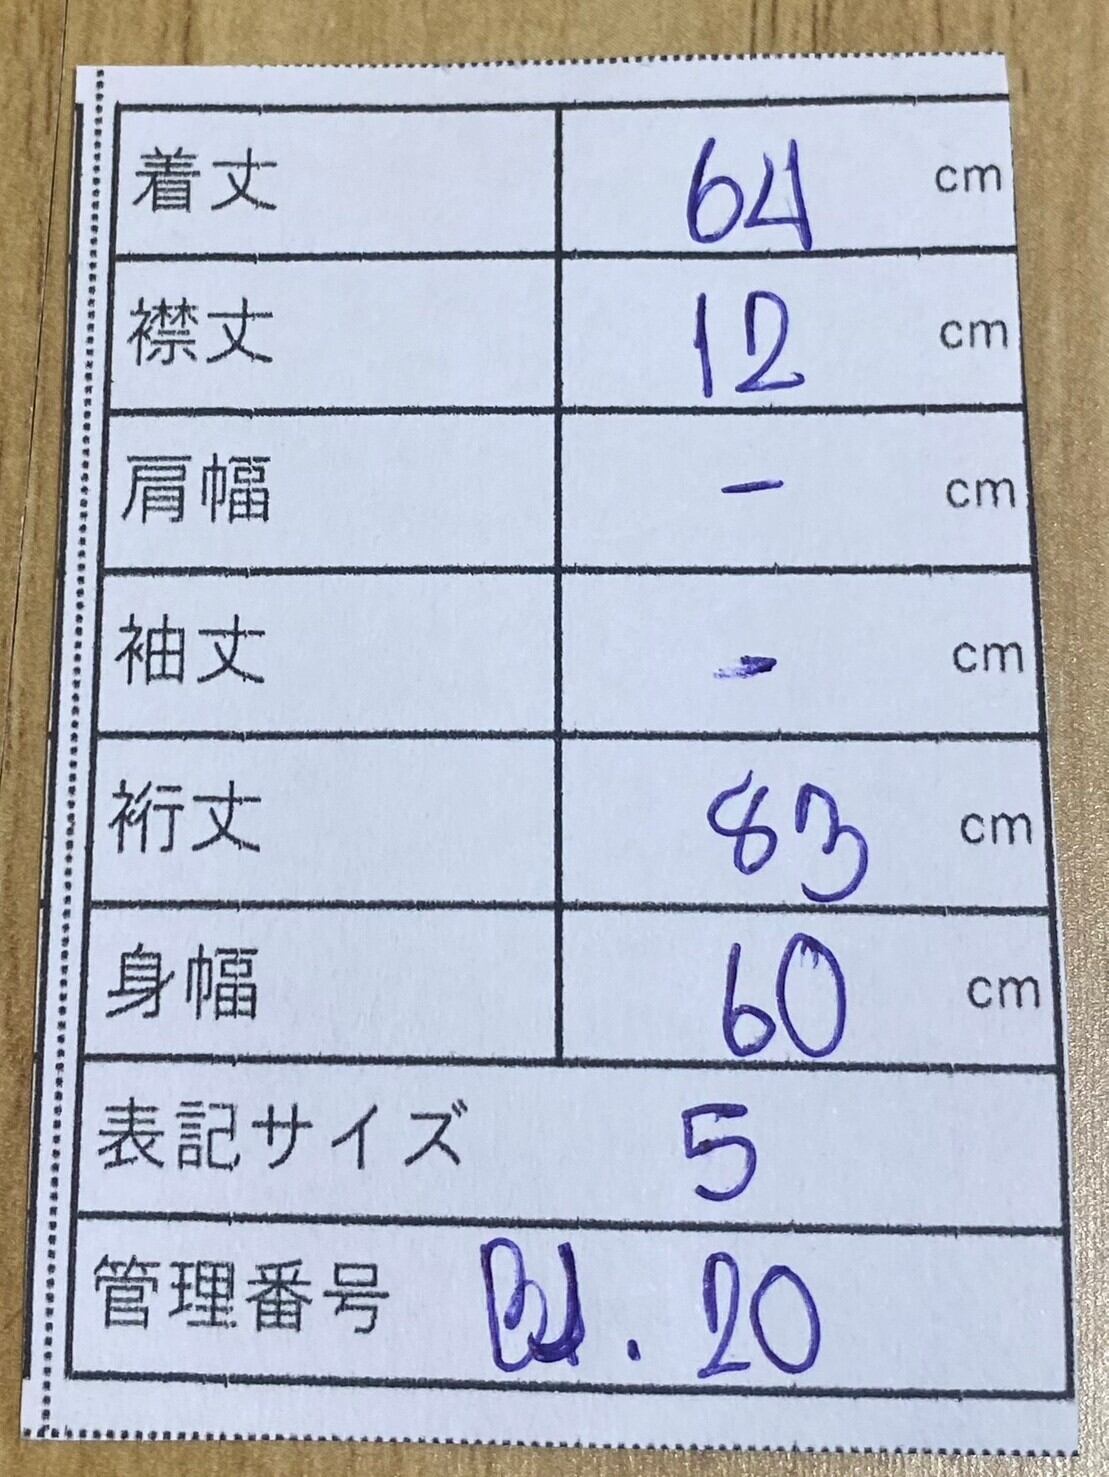 着丈 64 cm
襟丈 12 cm
肩幅 - cm
袖丈 - cm
裄丈 83 cm
身幅 60 cm
表記サイズ 5
管理番号 . 20